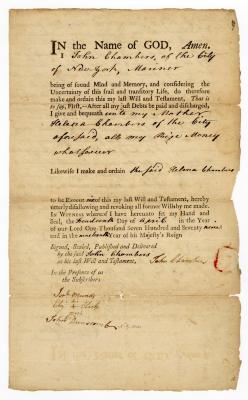 IN the Name of GOD, Amen.
I John Chambers, of the City
of New-York, Mariner
being of sound Mind and Memory, and considering the
Uncertainty of this frail and transitory Life, do therefore
make and ordain this my last Will and Testament, That is
to say, First,—After all my just Debts be paid and discharged,
I give and bequeath unto my Mother
Helena Chambers of the City
aforesaid, all my Prize Money
whatsoever
Likewise I make and ordain the said Helena Chambers
to be Execut of this my last Will and Testament, hereby
utterly disallowing and revoking all former Wills by me made.
In WITNESS whereof I have hereunto set my Hand and
Seal, the Day of April in the Year
of our Lord One Thousand Seven Hundred and Seventy nine
and in the nineteenth Year of his Majesty's Reign
Signed, Sealed, Published and Delivered
by the said John Chambers
as his last Will and Testament,
John Chambers
In the Presence of us
the Subscribers
John